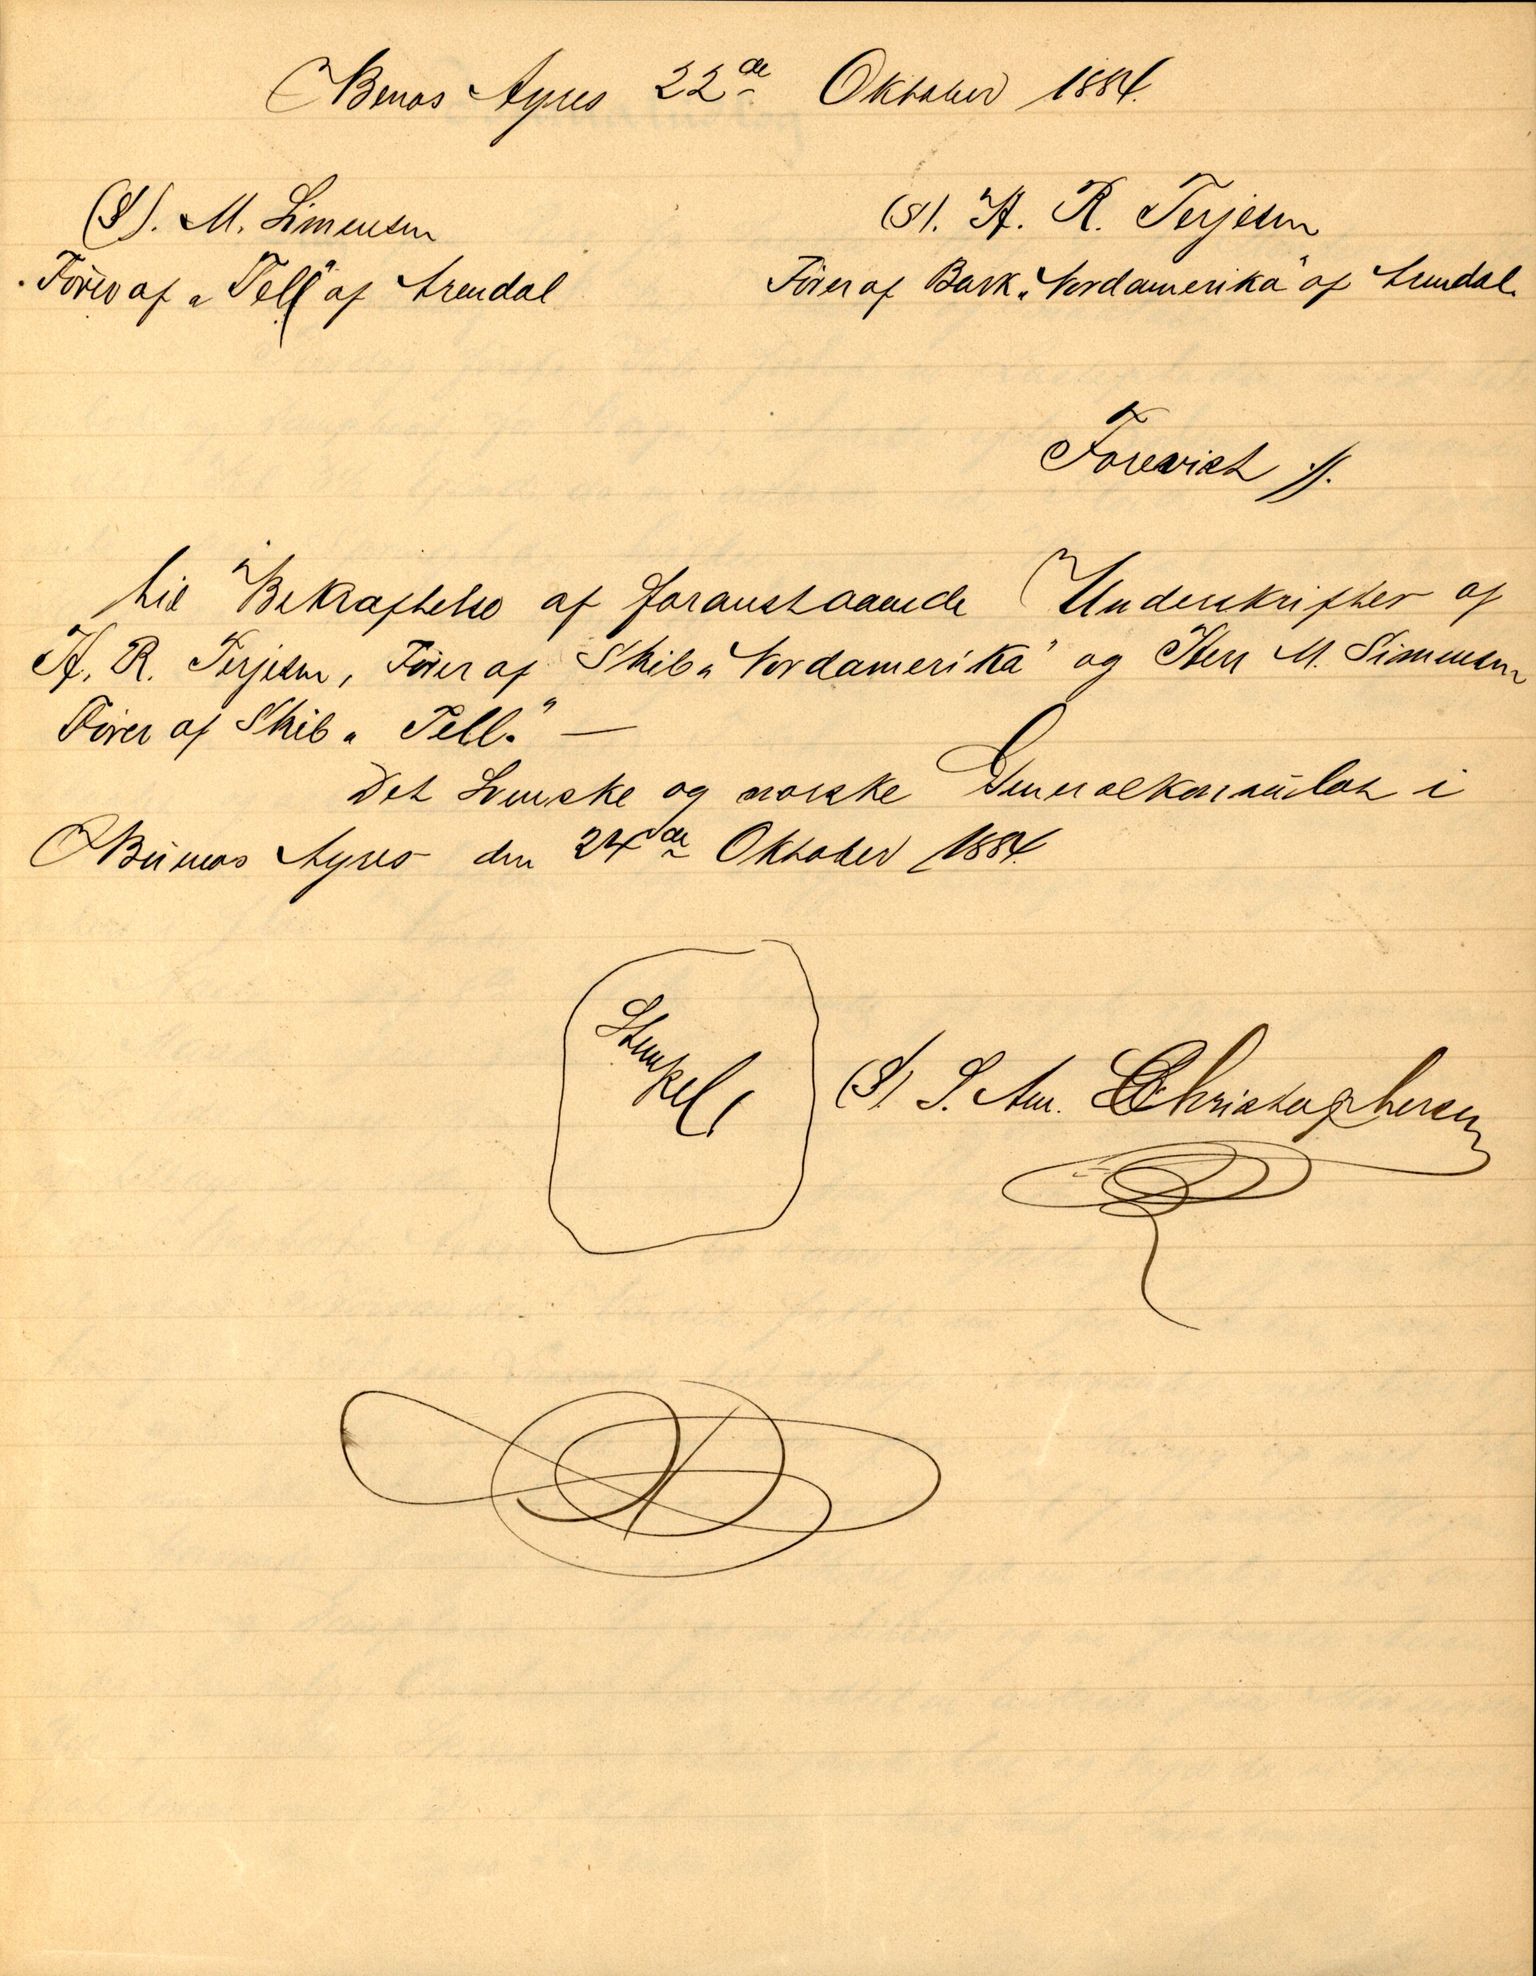 Benos Ayres 22de Oktober 1884.
(S). M. Simensen
Förer af „Tell" af Arendal
(S). H. R. Terjesen
Förer af Bark „Nordamerika" af Arendal.
Forevist //.
til Bekræftelse af foranstaaende Underskrifter af
H. R. Terjesen, Förer af Skib „Nordamerika" og Herr M. Simensen
Förer af Skib „Tell." —
Det Svenske og norske Generalkonsulat i
Buenos Ayres den 24de Oktober 1884.
Stempel
(S). S. Am. Christophersen